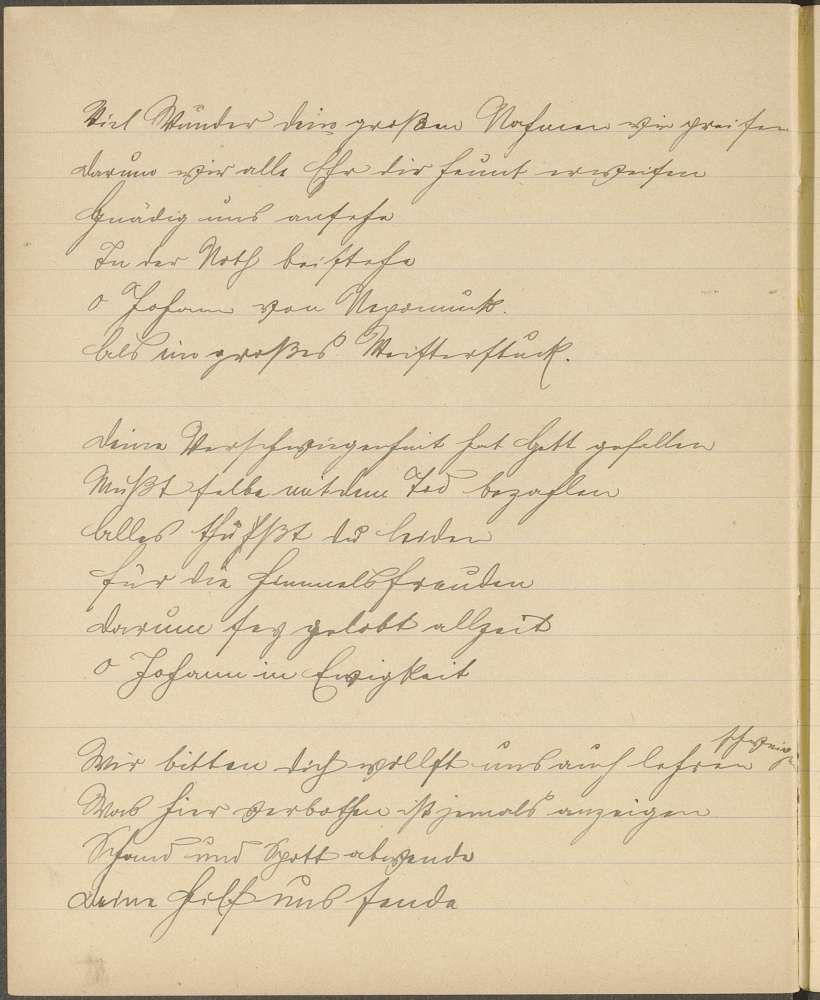 Viel Wunder dein großen Nahmen wir preisen
Darum wir alle Ehr dir heunt erweisen
Gnädig uns ansehe
In der Noth beistehe
O Johann von Nepomuk.
Als ein großes Meisterstück.
Deine Verschwiegenheit hat Gott gefallen
Mußt selbe mit dem Tod bezahlen
Alles thußt du leiden
Für die Himmelsfreuden
Darum sey gelobt allzeit
O Johann in Ewigkeit
Wir bitten dich wollst uns auch lehren schweigen
Was hier verbothen ist jemals anzeigen
Schand und Spott abwende
Deine Hilf uns sende